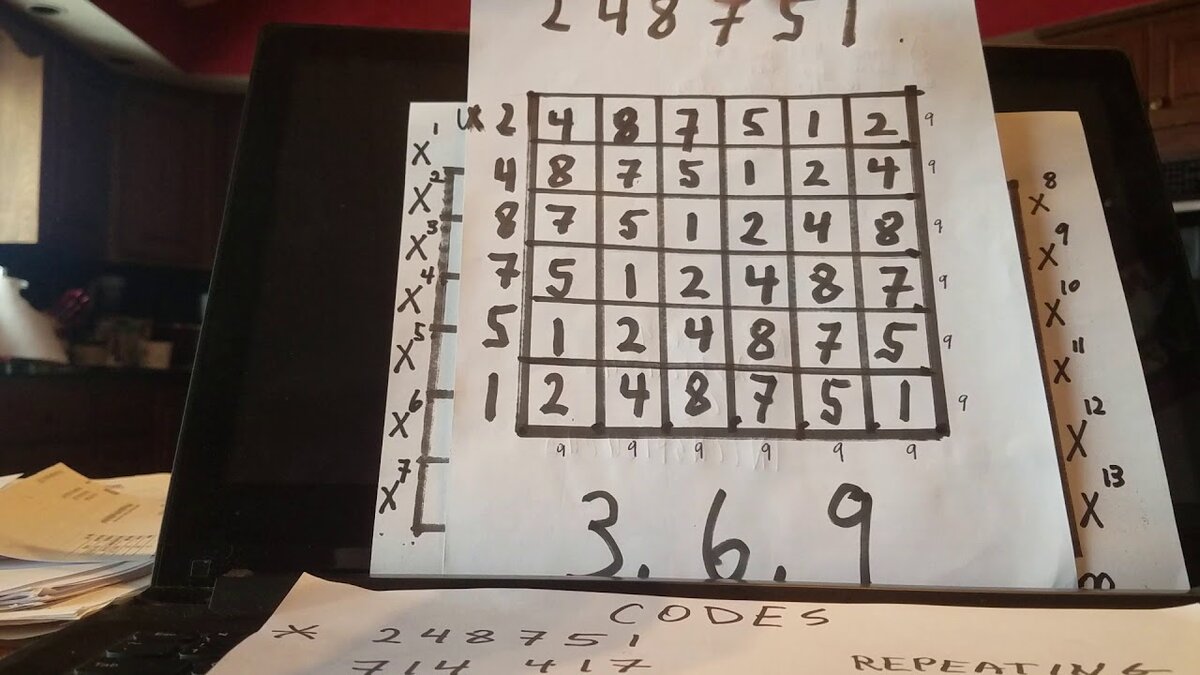 2 4 8 7 5 1 .
x 2 4 8 7 5 1 2 9
4 8 7 5 1 2 4 9
8 7 5 1 2 4 8 9
7 5 1 2 4 8 7 9
5 1 2 4 8 7 5 9
1 2 4 8 7 5 1 9
9 9 9 9 9 9
3. 6. 9
x¹
x²
x³
x⁴
x⁵
x⁶
x⁷
x⁸
x⁹
x¹⁰
x¹¹
x¹²
x¹³
CODES
* 2 4 8 7 5 1
714 417
REPEATING